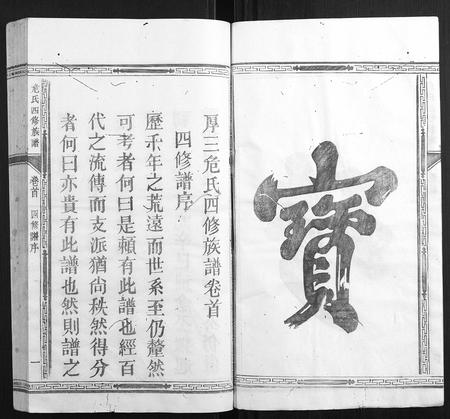 寶
厚三危氏四修族譜卷首
四修譜序
歷禾年之荒遠而世系至仍釐然
可考者何曰是賴有此譜也經百
代之流傳而支派猶尚秩然得分
者何曰亦貴有此譜也然則譜之
危氏四修族譜
卷首
四修譜序
一